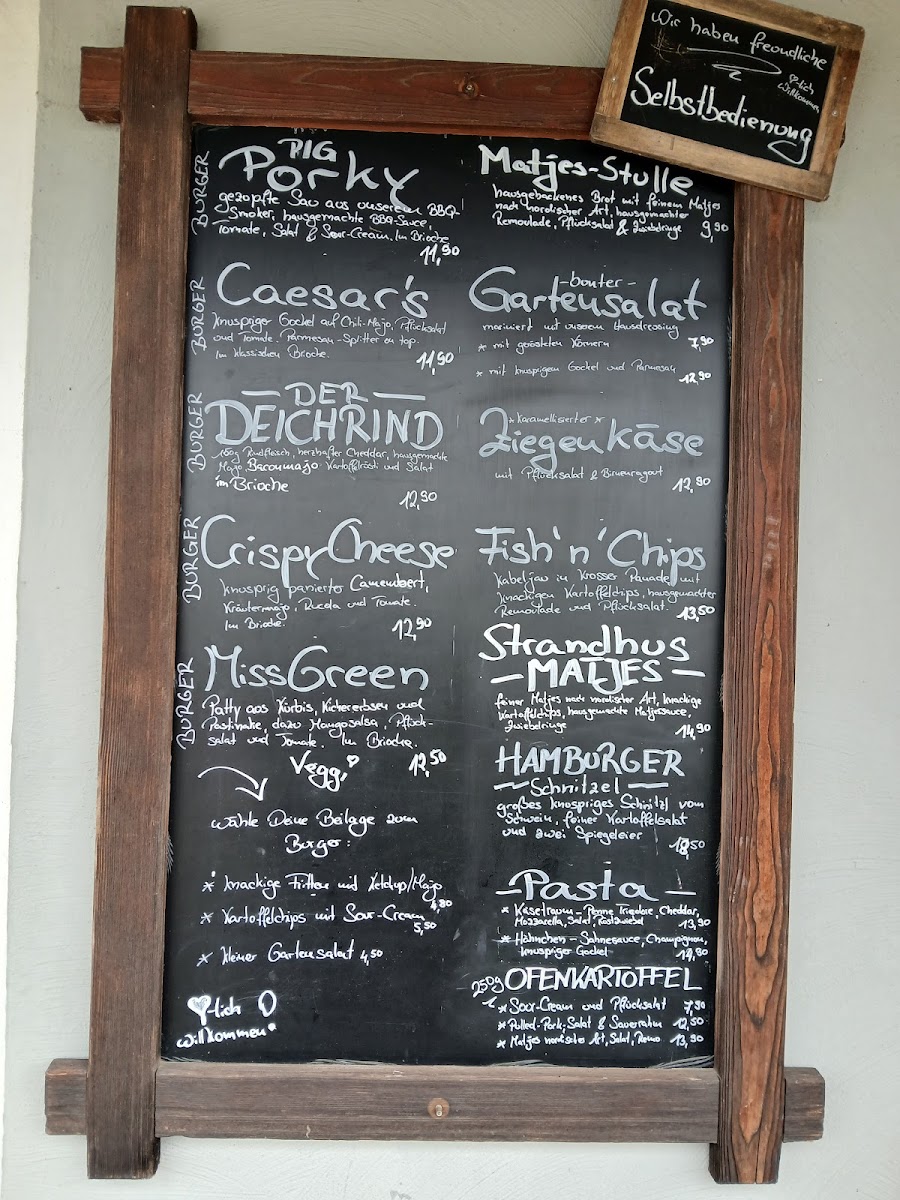 Wir haben freundliche
♡lich
willkommen
Selbstbedienung
BURGER
PIG
Porky
gezupfte Sau aus unserem BBQ-
Smoker, hausgemachte BBQ-Sauce,
Tomate, Salat & Sour-Cream. Im Brioche
11,90
BURGER
Caesar's
Knuspriger Gockel auf Chili-Majo, Pflücksalat
und Tomate. Parmesan-Splitter on top.
Im klassischen Brioche.
11,90
BURGER
- DER -
DEICHRIND
150g Rindfleisch, herzhafter Cheddar, hausgemachte
Majo, Baconmajo Kartoffelrösti und Salat
im Brioche
12,90
BURGER
Crispy Cheese
knusprig panierter Camembert,
Kräutermajo, Rucola und Tomate.
Im Brioche.
12,90
BURGER
Miss Green
Patty aus Kürbis, Kichererbsen und
Pastinake, dazu Mangosalsa, Pflück-
salat und Tomate. Im Brioche.
Veggi
12,50
Wähle Deine Beilage zum
Burger:
* knackige Fritten mit Ketchup/Majo
4,80
* Kartoffelchips mit Sour-Cream
5,50
* kleiner Gartensalat 4,50
♡lich
willkommen
Matjes-Stulle
hausgebackenes Brot mit feinem Matjes
nach nordischer Art, hausgemachter
Remoulade, Pflücksalat & Zwiebelringe 9,90
- bunter -
Gartensalat
mariniert mit unserem Hausdressing
* mit gerösteten Körnern 7,90
* mit knusprigem Gockel und Parmesan
12,90
* Karamellisierter *
Ziegenkäse
mit Pflücksalat & Birnenragout
12,90
Fish 'n' Chips
Kabeljau in Krosser Panade mit
knackigen Kartoffelchips, hausgemachter
Remoulade und Pflücksalat. 13,50
Strandhus
- MATJES -
feiner Matjes nach nordischer Art, knackige
Kartoffelchips, hausgemachte Matjessauce,
Zwiebelringe
14,90
HAMBURGER
- Schnitzel -
großes knuspriges Schnitzel vom
Schwein, feiner Kartoffelsalat
und zwei Spiegeleier
18,50
- Pasta -
* Käsetraum - Penne Tricolore, Cheddar,
Mozzarella, Salat, Röstzwiebel 13,90
* Hähnchen - Sahnesauce, Champignon,
knuspriger Gockel 14,90
250g OFENKARTOFFEL
* Sour-Cream und Pflücksalat 7,90
* Pulled-Pork, Salat & Sauerrahm 12,50
* Matjes nordischer Art, Salat, Remo 13,90